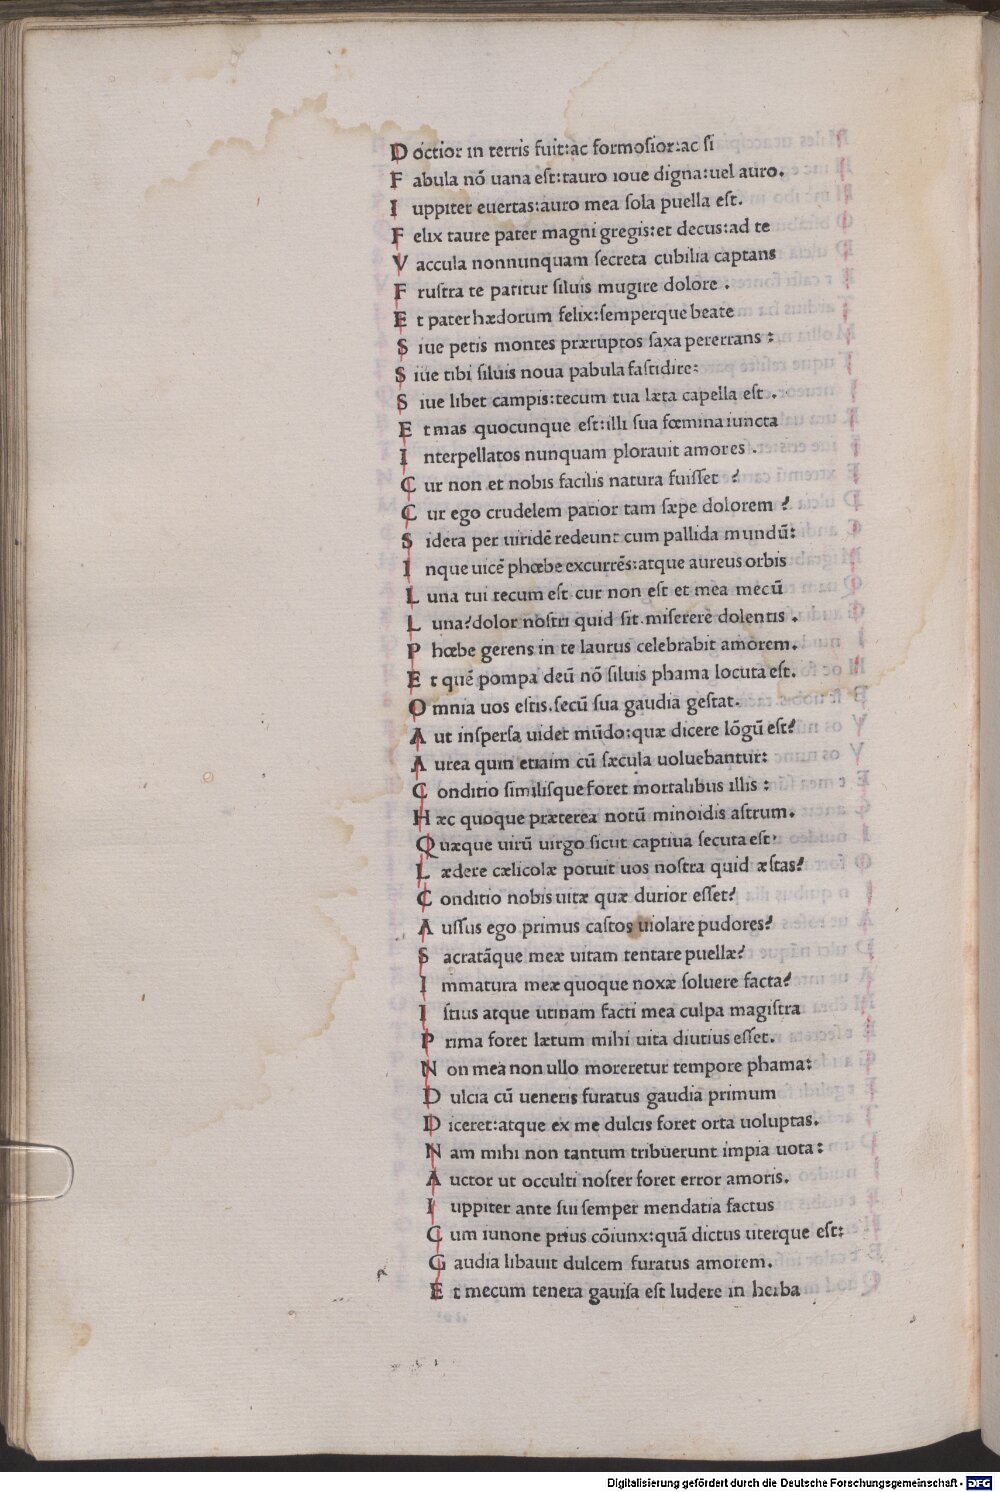 Doctior in terris fuit:ac formosior:ac si
Fabula nō uana est:tauro ioue digna:uel auro.
Iuppiter euertas:auro mea sola puella est.
Felix taure pater magni gregis:et decus:ad te
Vaccula nonnunquam secreta cubilia captans
Frustra te patitur siluis mugire dolore .
Et pater hædorum felix:semperque beate
Siue petis montes præruptos saxa pererrans :
Siue tibi siluis noua pabula fastidire:
Siue libet campis:tecum tua læta capella est .
Et mas quocunque est:illi sua fœmina iuncta
Interpellatos nunquam plorauit amores .
Cur non et nobis facilis natura fuisset ?
Cur ego crudelem patior tam sæpe dolorem ?
Sidera per uiridē redeunt cum pallida mundū:
Inque uicē phœbe excurrēs:atque aureus orbis
Luna tui tecum est cur non est et mea mecū
Luna?dolor nostri quid sit.miserere dolentis .
Phœbe gerens in te laurus celebrabit amorem.
Et quē pompa deū nō siluis phama locuta est.
Omnia uos estis.secū sua gaudia gestat.
Aut inspersa uidet mūdo:quæ dicere lōgū est?
Aurea quin etiaim cū sæcula uoluebantur:
Conditio similisque foret mortalibus illis :
Hæc quoque præterea notū minoidis astrum.
Quæque uirū uirgo sicut captiua secuta est.
Lædere cælicolæ potuit uos nostra quid æstas?
Conditio nobis uitæ quæ durior esset?
Aussus ego primus castos uiolare pudores?
Sacratāque meæ uitam tentare puellæ?
Immatura meæ quoque noxæ soluere facta?
Istius atque utinam facti mea culpa magistra
Prima foret lætum mihi uita diutius esset.
Non mea non ullo moreretur tempore phama:
Dulcia cū ueneris furatus gaudia primum
Diceret:atque ex me dulcis foret orta uoluptas.
Nam mihi non tantum tribuerunt impia uota:
Auctor ut occulti noster foret error amoris.
Iuppiter ante sui semper mendatia factus
Cum iunone prius cōiunx:quā dictus uterque est:
Gaudia libauit dulcem furatus amorem.
Et mecum tenera gauisa est ludere in herba
Digitalisierung gefördert durch die Deutsche Forschungsgemeinschaft - DFG